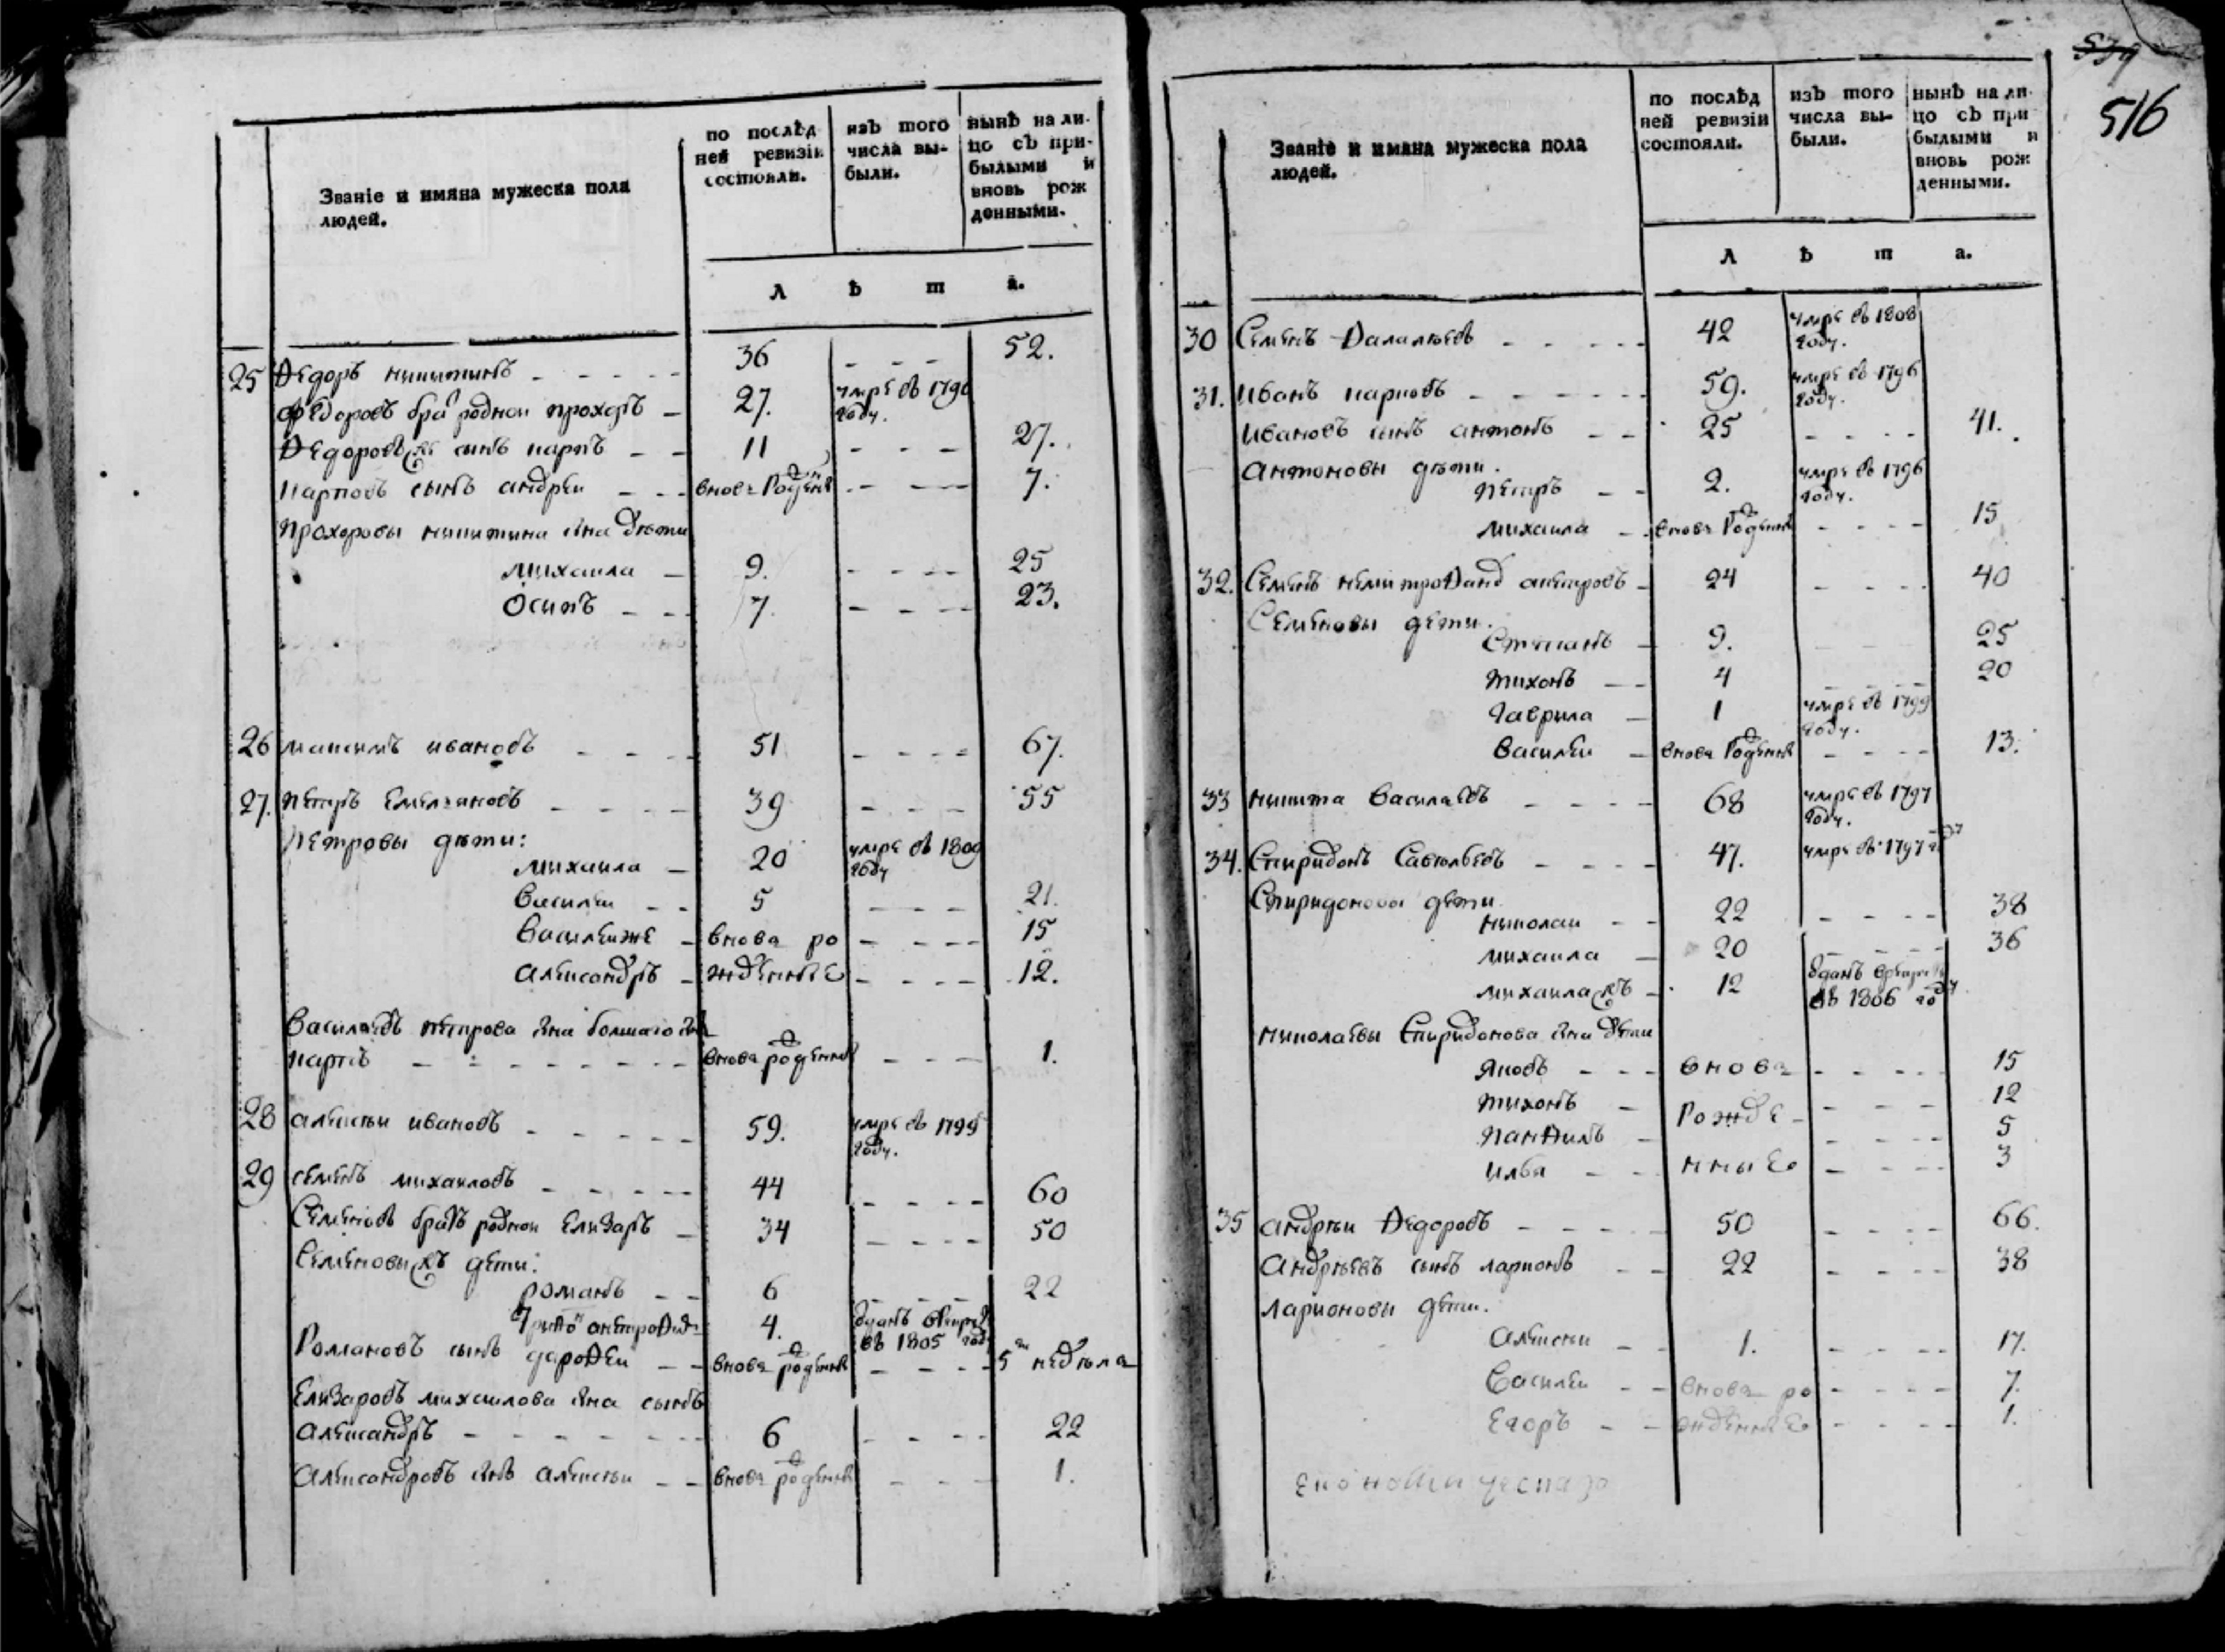 Званіе и имяна мужеска пола
людей.
по послѣд
ней ревизіи
состояли.
изъ того
числа вы-
были.
нынѣ на ли-
цо съ при-
былыми и
вновь рож
денными.
л ѣ т а.
25 Ѳедоръ никитинъ - - - - 36 - - - 52.
ѳедоровъ бра т роднои прохоръ - 27. умре въ 1796
году.
Ѳедоровъ сынъ карпъ - - 11 - - - 27.
Карповъ сынъ андреи - - - вновь Рожденъ - - - 7.
Прохоровы никитина сна дѣти
михаила - 9. - - - - 25
Осипъ - - - 7. - - - - 23.
26 максимъ ивановъ - - - - 51 - - - - 67.
27. Петръ Емельяновъ - - - - 39 - - - 55
Петровы дѣти:
михаила - 20 умре въ 1809
году
василеи - - 5 - - - 21.
василеиже - вновь ро - - - - 15
александръ - жденные - - - - 12.
василевъ петрова сна большаго снъ
карпъ - - - - - - - вновь рожденъ - - - 1.
28 алексѣи ивановъ - - - - - 59. умре въ 1799
году.
29 семенъ михаиловъ - - - - - 44 - - - - 60
Семеновъ братъ роднои Елизаръ - 34 - - - - 50
Семеновы дети:
романъ - - 6 - - - - 22
4. отданъ врекруты
въ 1805 году
Романовъ сынъ дароѳеи - - вновь рожденъ - - - - 5 недѣль
Елизаровъ михаилова сна сынъ
александръ - - - - - - - 6 - - - - 22
александровъ снъ алексѣи - - вновь рожденъ - - - 1.
539
516
Званіе и имяна мужеска пола
людей.
по послѣд
ней ревизіи
состояли.
изъ того
числа вы-
были.
нынѣ на ли-
цо съ при
былыми и
вновь рож
денными.
л ѣ т а.
30 Семенъ Ѳалалѣевъ - - - - - 42 умре въ 1808
году.
31. иванъ карповъ - - - - - - 59. умре въ 1796
году.
ивановъ сынъ антонъ - - 25 - - - - 41.
антоновы дѣти.
Петръ - - 2. умре въ 1796
году.
михаила - - вновь Рожденъ - - - - 15
32. Семенъ - 24 - - - - 40
Семеновы дети.
Степанъ - 9. - - - 25
тихонъ - - 4 - - - - 20
гаврила - 1 умре въ 1799
году.
василеи - вновь Рожденъ - - - - 13.
33 никита василевъ - - - - 68 умре въ 1797
году.
34. Спиридонъ Савельевъ - - - - 47. умре въ 1797 году
Спиридоновы дети.
николаи - - 22 - - - - 38
михаила - 20 - - - - 36
михаила - 12 отданъ врекруты
въ 1806 году
николаевы Спиридонова сна дети
яковъ - - - вновь - - - - 15
тихонъ - Рожде - - - - 12
Панѳилъ - - - - - 5
илья - - нные - - - - 3
35 андрѣи Ѳедоровъ - - - - - 50 - - - - 66.
андрѣевъ сынъ ларионъ - - 22 - - - - 38
ларионовы дети.
алексѣи - - 1. - - - - 17.
василеи - - вновь ро - - - - 7.
Егоръ - - жденные - - - - 1.